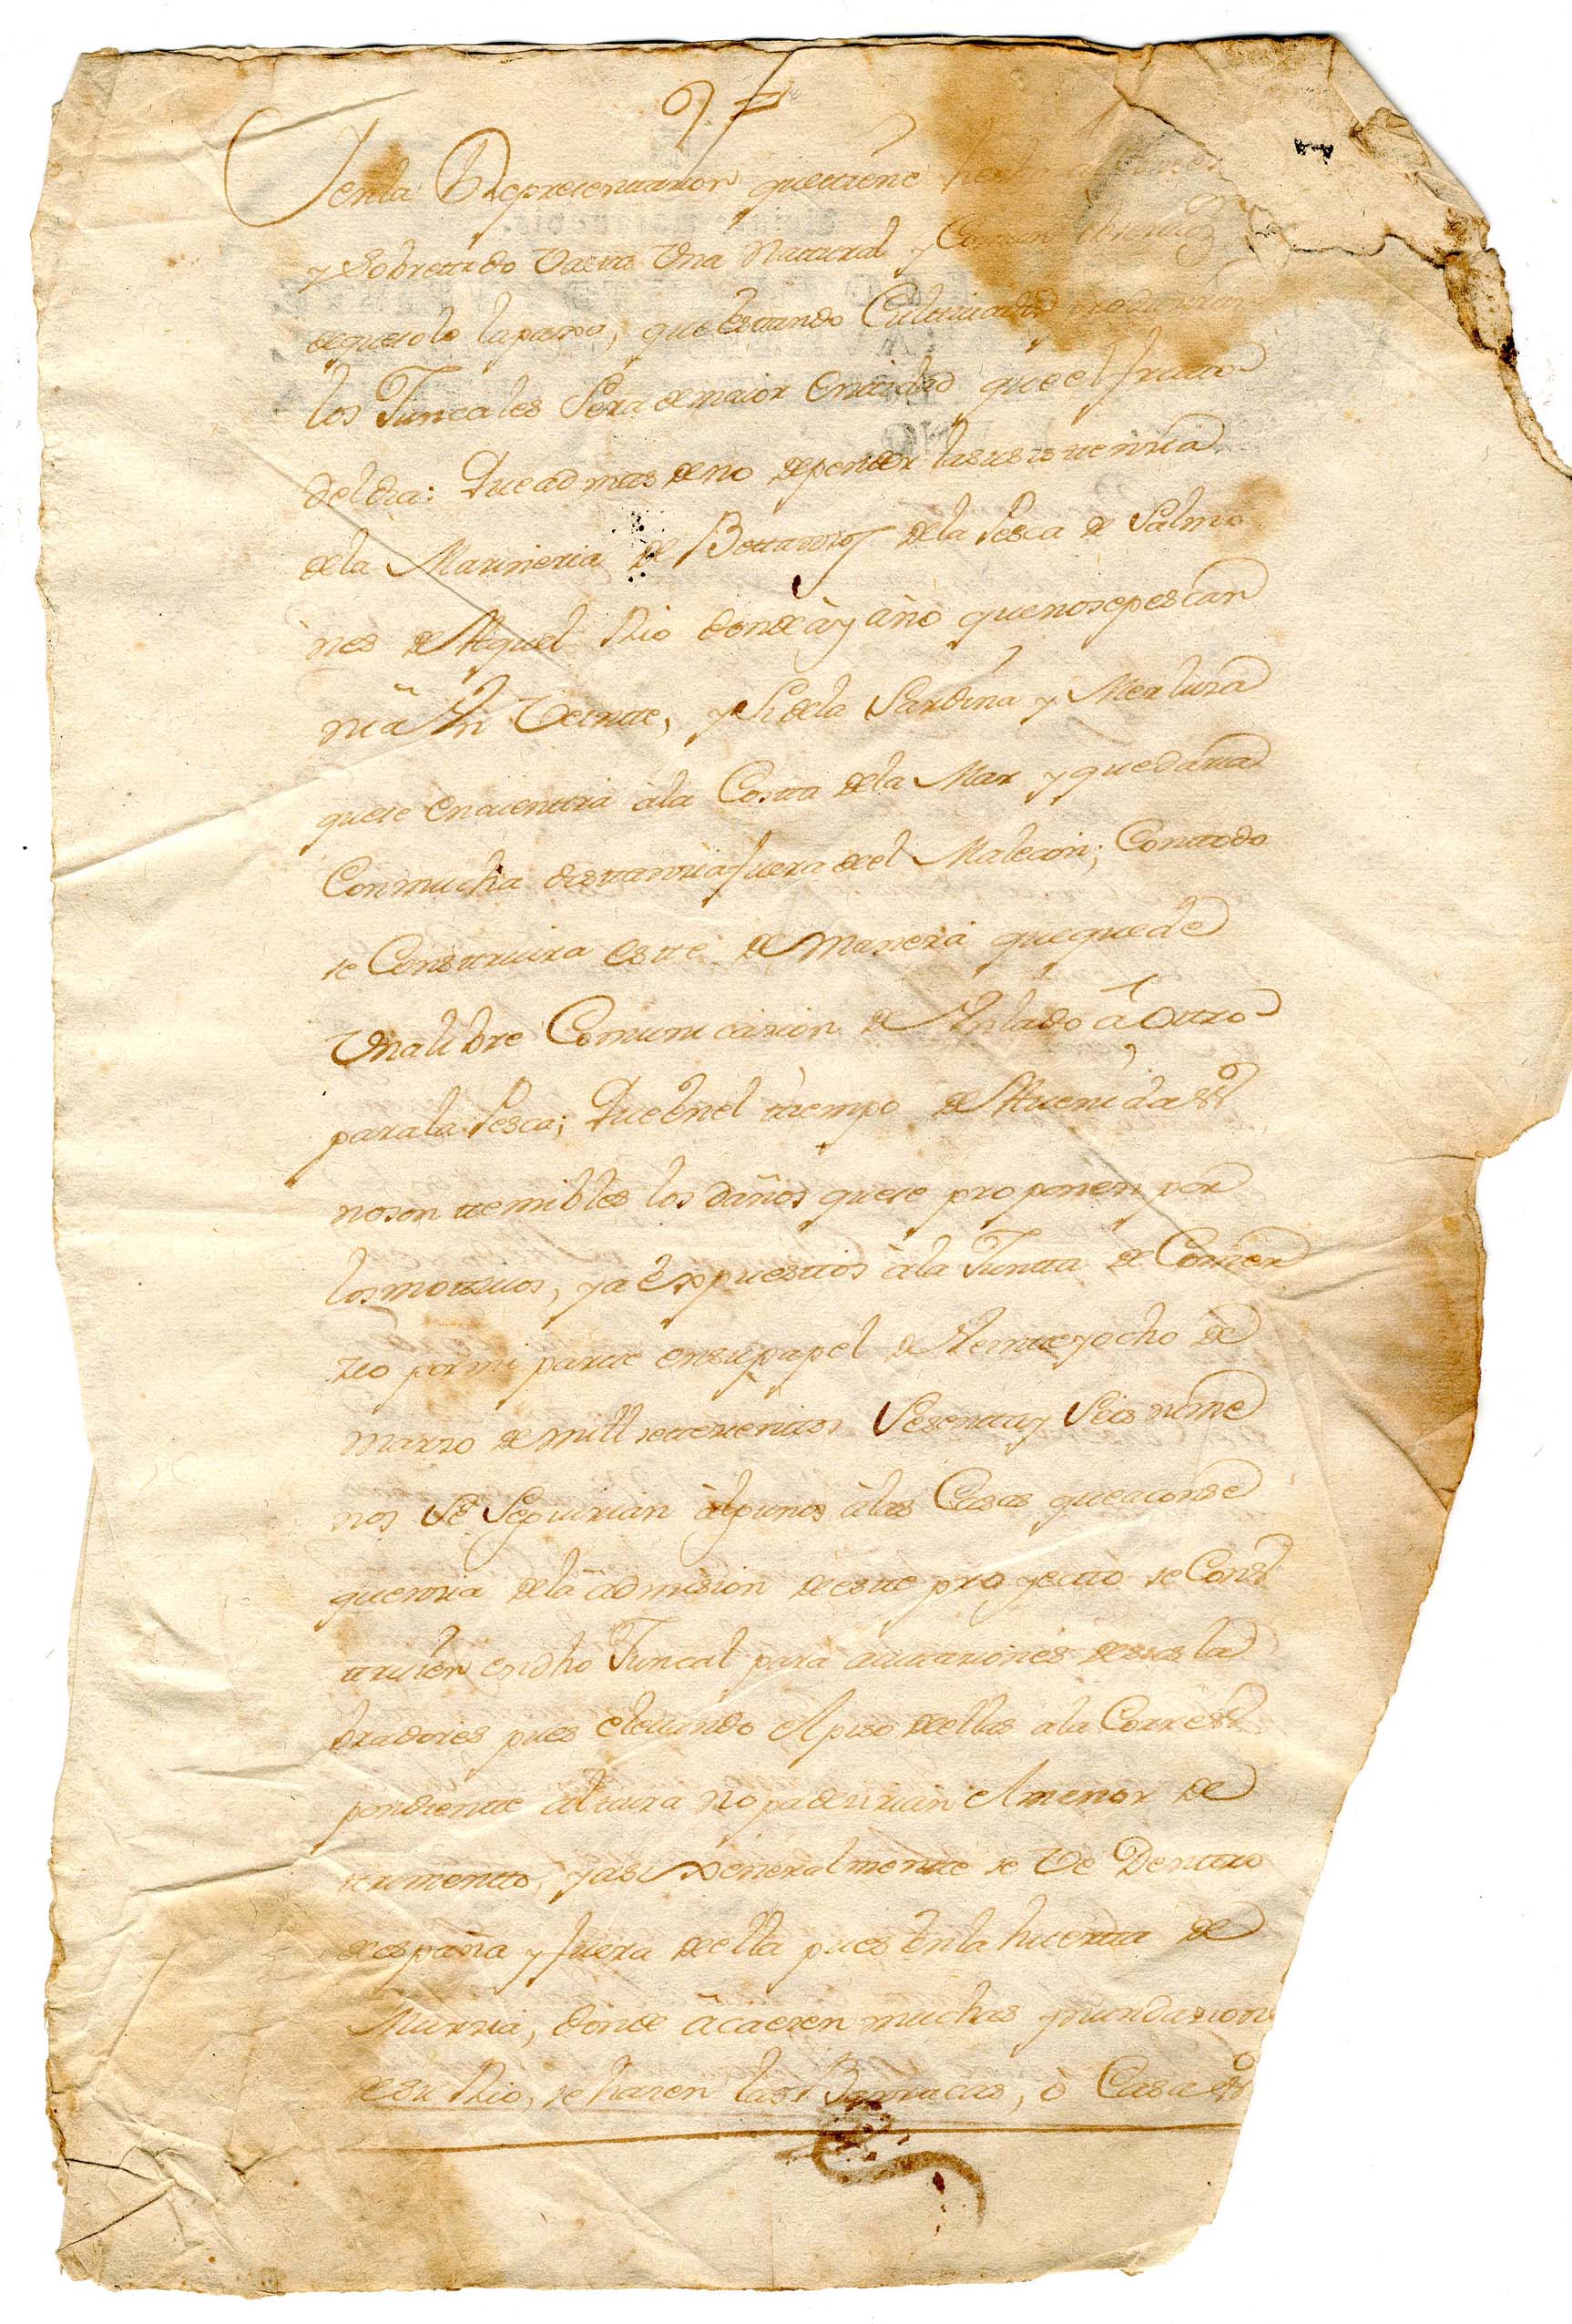 y en la Representazion que ttiene hecha
y sobre ttodo vasta una Natural y Comun
de que solo la paxa, que esttando Culttivados producirian
los Juncales sera de maior enttidad que el frutto
del dia: Que ad mas de no depender la susistenzia
de la Marineria de Bettanzos de la Pesca de Salmo
nes de Aquel Rio donde ây año que no se pescan
niâ un Veintte, y si de la Sardina y Merluza
que se encuenttra â la Costta de la Mar y quedaria
Con mucha disttanzia fuera de el Malecon; Con ttodo
se Consttruira estte de Manera que quede
Una libre Comunicazion de Un lado â Ottro
para la Pesca; Que en el ttiempo de Avenidas
no son ttemibles los daños que se proponen por
los mottivos, ya Expuesttos â la Juntta de Comer
zio por mi partte en su papel de Veintte y ocho de
Marzo de mill settezienttos Sesentta y Seis ni me
nos se seguirian âlgunos â las Casas que a conse
quenzia de la âdmision de estte proyectto se Cons
ttruien en dho Juncal para avittaziones de sus la
bradores pues elevando el piso de ellas a la Corres
pondientte alttura no padezerian el menor de
ttrimentto, y asi Xeneralmentte se ve Denttro
de españa y fuera de ella pues en la huertta de
Murzia, donde âcaezen muchas ynundaziones
de su Rio, se hazen las Barracas, ô Casas